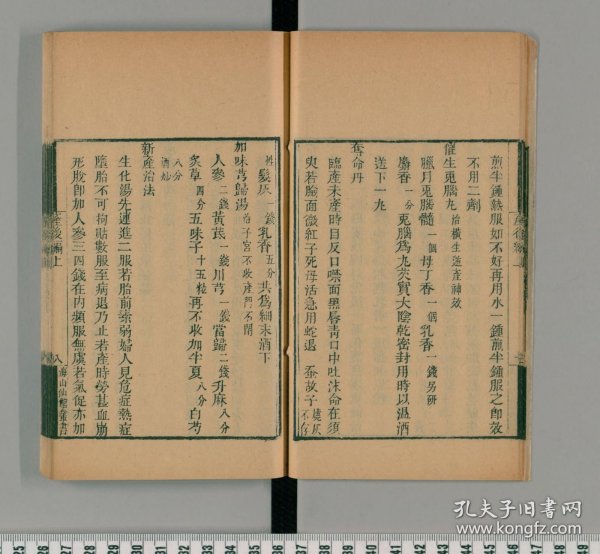 煎半鍾熱服如不好再用水一鍾煎半鍾服之卽效
不用二劑
催生兎腦丸 治橫生逆產神效
臘月兎腦髓 一個 母丁香 一個 乳香 一錢另研
麝香 一分 兎腦爲丸芡實大陰乾密封用時以温酒
送下一丸
奪命丹
臨產未產時目反口噤面黑唇青口中吐沫命在須
臾若臉面微紅子死母活急用蛇退 蚕故子 燒灰不存
髮灰 一錢 乳香 五分 共爲細末酒下
加味芎歸湯 治子宮不收產門不閉
人參 二錢 黃芪 一錢 川芎 一錢 當歸 二錢 升麻 八分
炙草 四分 五味子 十五粒 再不收加半夏 八分 白芍
八分 酒炒
新產治法
生化湯先連進二服若胎前素弱婦人見危症熱症
墮胎不可拘貼數服至病退乃止若產時勞甚血崩
形脫卽加人參三四錢在內頻服無虞若氣促亦加
產後編上
八
海山仙館叢書
孔夫子旧书网
www.kongfz.com
25 26 27 28 29 30 31 32 33 34 35 36 37 38 39 40 41 42 43 44 45 46 47 48 49